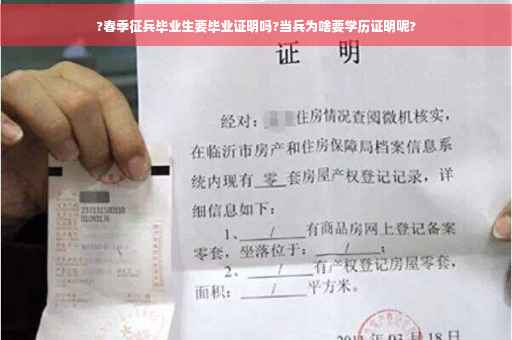 ?春季征兵毕业生要毕业证明吗?当兵为啥要学历证明呢?
证 明
经对: 住房情况查阅微机核实,
在临沂市房产和住房保障局档案信息系
统内现有 零 套房屋产权登记记录,详
细信息如下:
1、 / 有商品房网上登记备案
零套,坐落位于: / ;
2、 / 有产权登记房屋零套,
面积: / 平方米。
03月18日